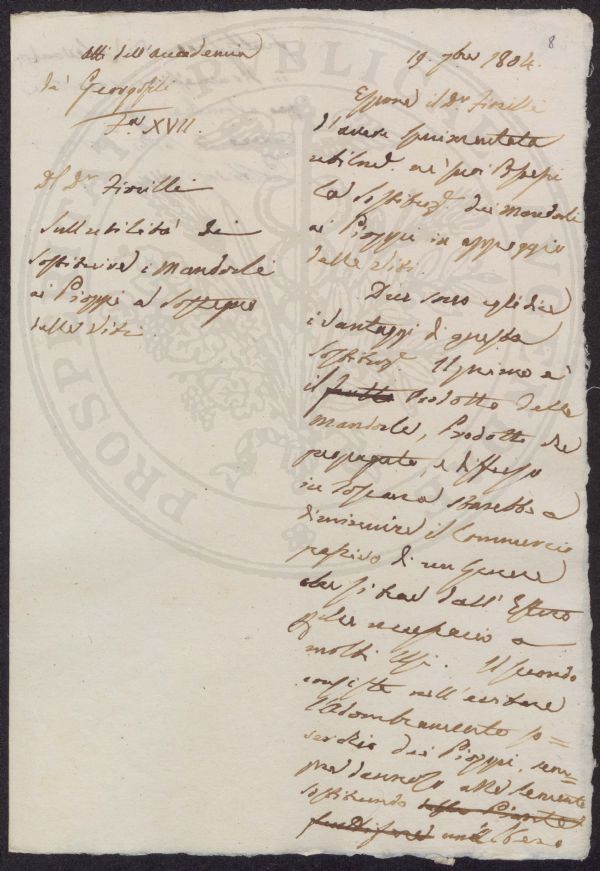 atti dell'accademia
de' Georgofili
XVII.
Del Dr. Fiorilli
Sull'utilità di
sostituire i Mandorli
ai Pioppi al Sostegno
delle Viti.
8
19. 9bre 1804.
Espone il Dr. Fiorilli
d'avere sperimentata
ne' suoi
la dei Mandorli
ai Pioppi in appoggio
delle Viti.
Due sono egli dice
i vantaggi di questa
Il primo è
il frutto Prodotto delle
Mandorle, Prodotto che
propagato, e diffuso
in Toscana a
diminuire il Commercio
passivo di un Genere
che si trae dall'Estero
necessario a
molti Usi. Il secondo
consiste nell'evitare
l'adombramento so=
dei Pioppi, sem=
pre dannoso alle semente
sostituendo Piante
fruttifere